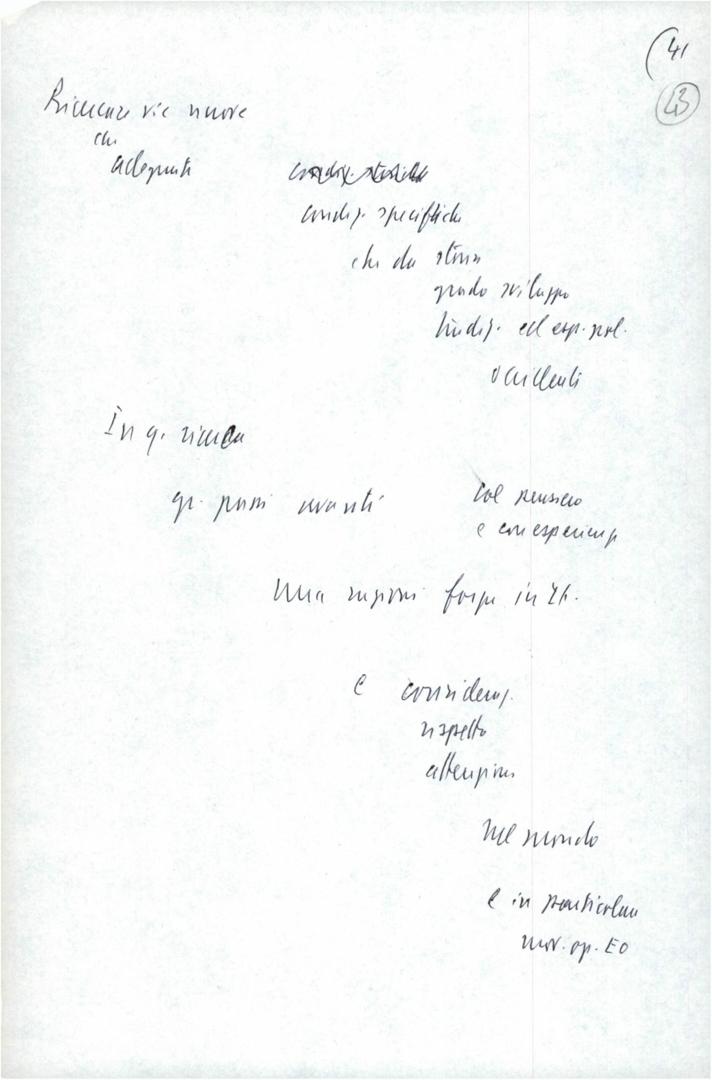 (41
43
Ricercare vie nuove
che
adeguate
condiz. storiche
condiz. specifiche
che da storia
grado sviluppo
tradiz. ed esp. pol.
occidente
In q. ricerca
gr. passi avanti
col pensiero
e con esperienz
Una ragioni forza in It.
e consideraz.
rispetto
attenzione
nel mondo
e in particolare
mov. op. EO